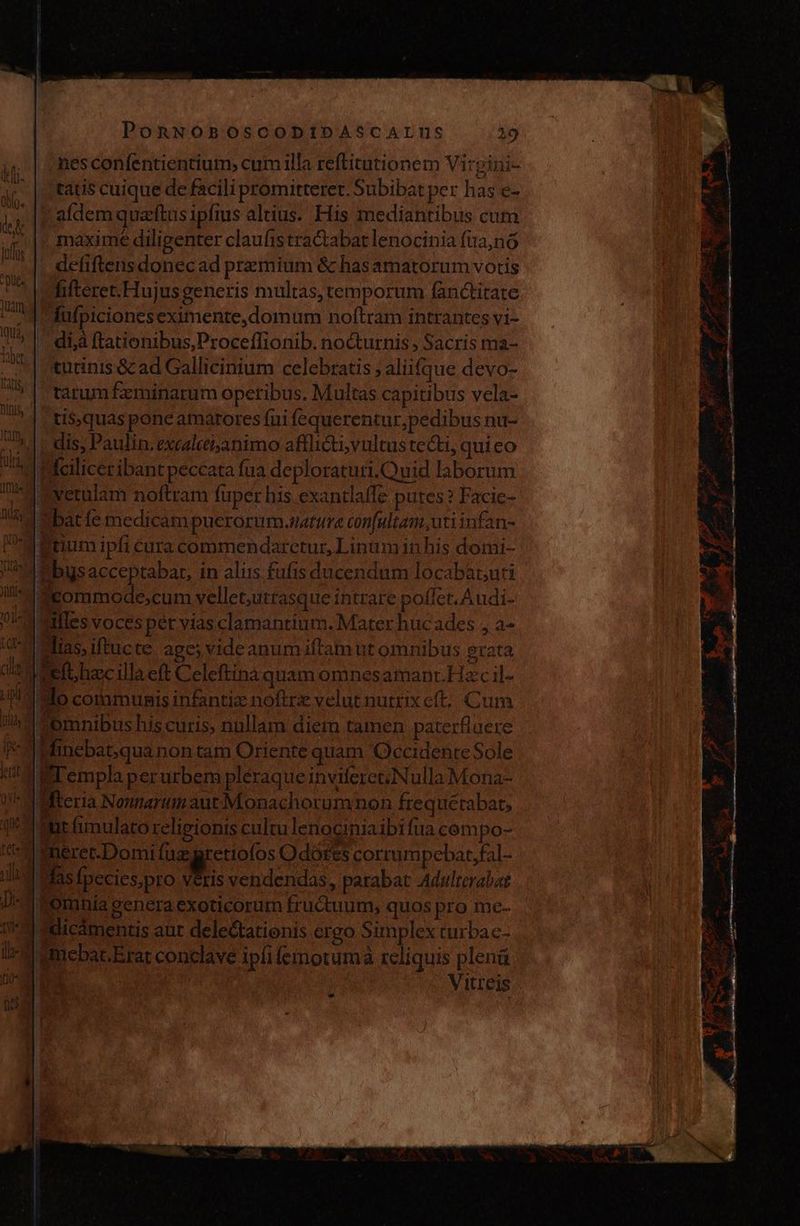 PORNOBOSCODIDASCALUS 29
nes conſentientium, cum illa reſtitutionem Virgini-
tatis cuique de facili promitteret. Subibat per has e-
aſdem quæſtus ipſius altius. His mediantibus cum
maxime diligenter clauſis tractabat lenocinia ſua, nõ
deſiſtens donec ad præmium & has amatorum votis
ſiſteret. Hujus generis multas, temporum ſanctitate
ſuſpiciones eximente, domum noſtram intrantes vi-
di, à ſtationibus, Proceſſionib. nocturnis, Sacris ma-
tutinis & ad Gallicinium celebratis, aliiſque devo-
tarum fæminarum operibus. Multas capitibus vela-
tis, quas pone amatores ſui ſequerentur, pedibus nu-
dis, Paulin. excalcei, animo afflicti, vultus tecti, qui eo
ſcilicet ibant peccata ſua deploraturi. Quid laborum
vetulam noſtram ſuper his exantlaſſe putes? Facie-
bat ſe medicam puerorum naturæ conſultam, uti infan-
tium ipſi cura commendaretur, Linum in his domi-
bus acceptabat, in aliis fuſis ducendum locabat, uti
commode, cum vellet, utrasque intrare poſſet. Audi-
iſſes voces per vias clamantium. Mater huc ades, a-
lias, iſtuc te age; vide anum iſtam ut omnibus grata
eſt, hæc illa eſt Celeſtina quam omnes amant. Hæc il-
lo communis infantiæ noſtræ velut nutrix eſt. Cum
omnibus his curis, nullam diem tamen paterfluere
ſinebat, qua non tam Oriente quam Occidente Sole
Templa per urbem pleraque inviſeret. Nulla Mona-
ſteria Nonnarum aut Monachorum non frequẽtabat,
ut ſimulato religionis cultu lenocinia ibi ſua compo-
neret. Domi ſuæ pretioſos Odores corrumpebat, fal-
ſas ſpecies, pro veris vendendas, parabat Adulterabat
omnia genera exoticorum fructuum, quos pro me-
dicamentis aut delectationis ergo Simplex turba e-
mebat. Erat conclave ipſi ſemotum à reliquis plenũ
Vitreis